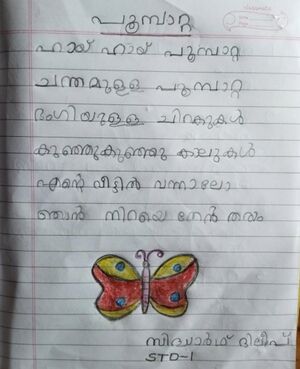 പൂമ്പാറ്റ
ഹായ് ഹായ് പൂമ്പാറ്റ
ചന്തമുള്ള പൂമ്പാറ്റ
ഭംഗിയുള്ള ചിറകുകൾ
കുഞ്ഞുകുഞ്ഞു കാലുകൾ
എന്റെ വീട്ടിൽ വന്നാലോ
ഞാൻ നിറയെ തേൻ തരാം
സിദ്ധാർഥ് ദിലീപ്
STD-1